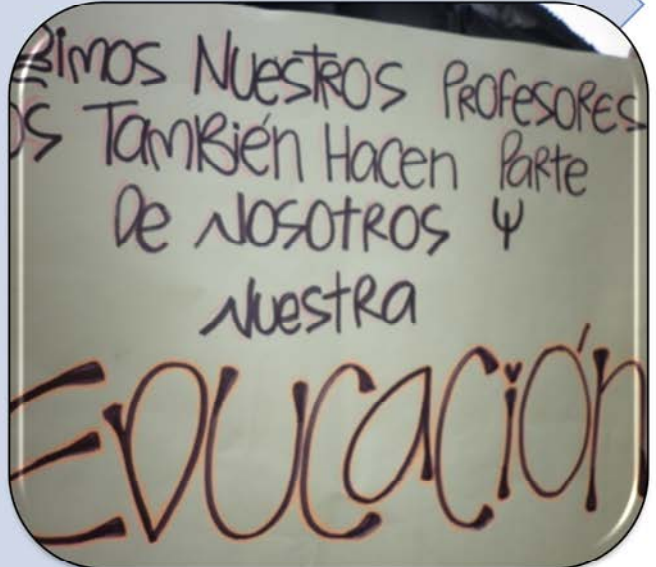 NUESTROS PROFESORES
TAMBIÉN HACEN PARTE
DE NOSOTROS Y
NUESTRA
EDUCACIÓN